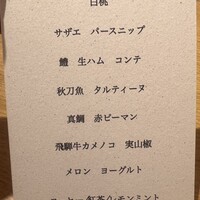 白桃
サザエ　パースニップ
鱧　生ハム　コンテ
秋刀魚　タルティーヌ
真鯛　赤ピーマン
飛騨牛カメノコ　実山椒
メロン　ヨーグルト